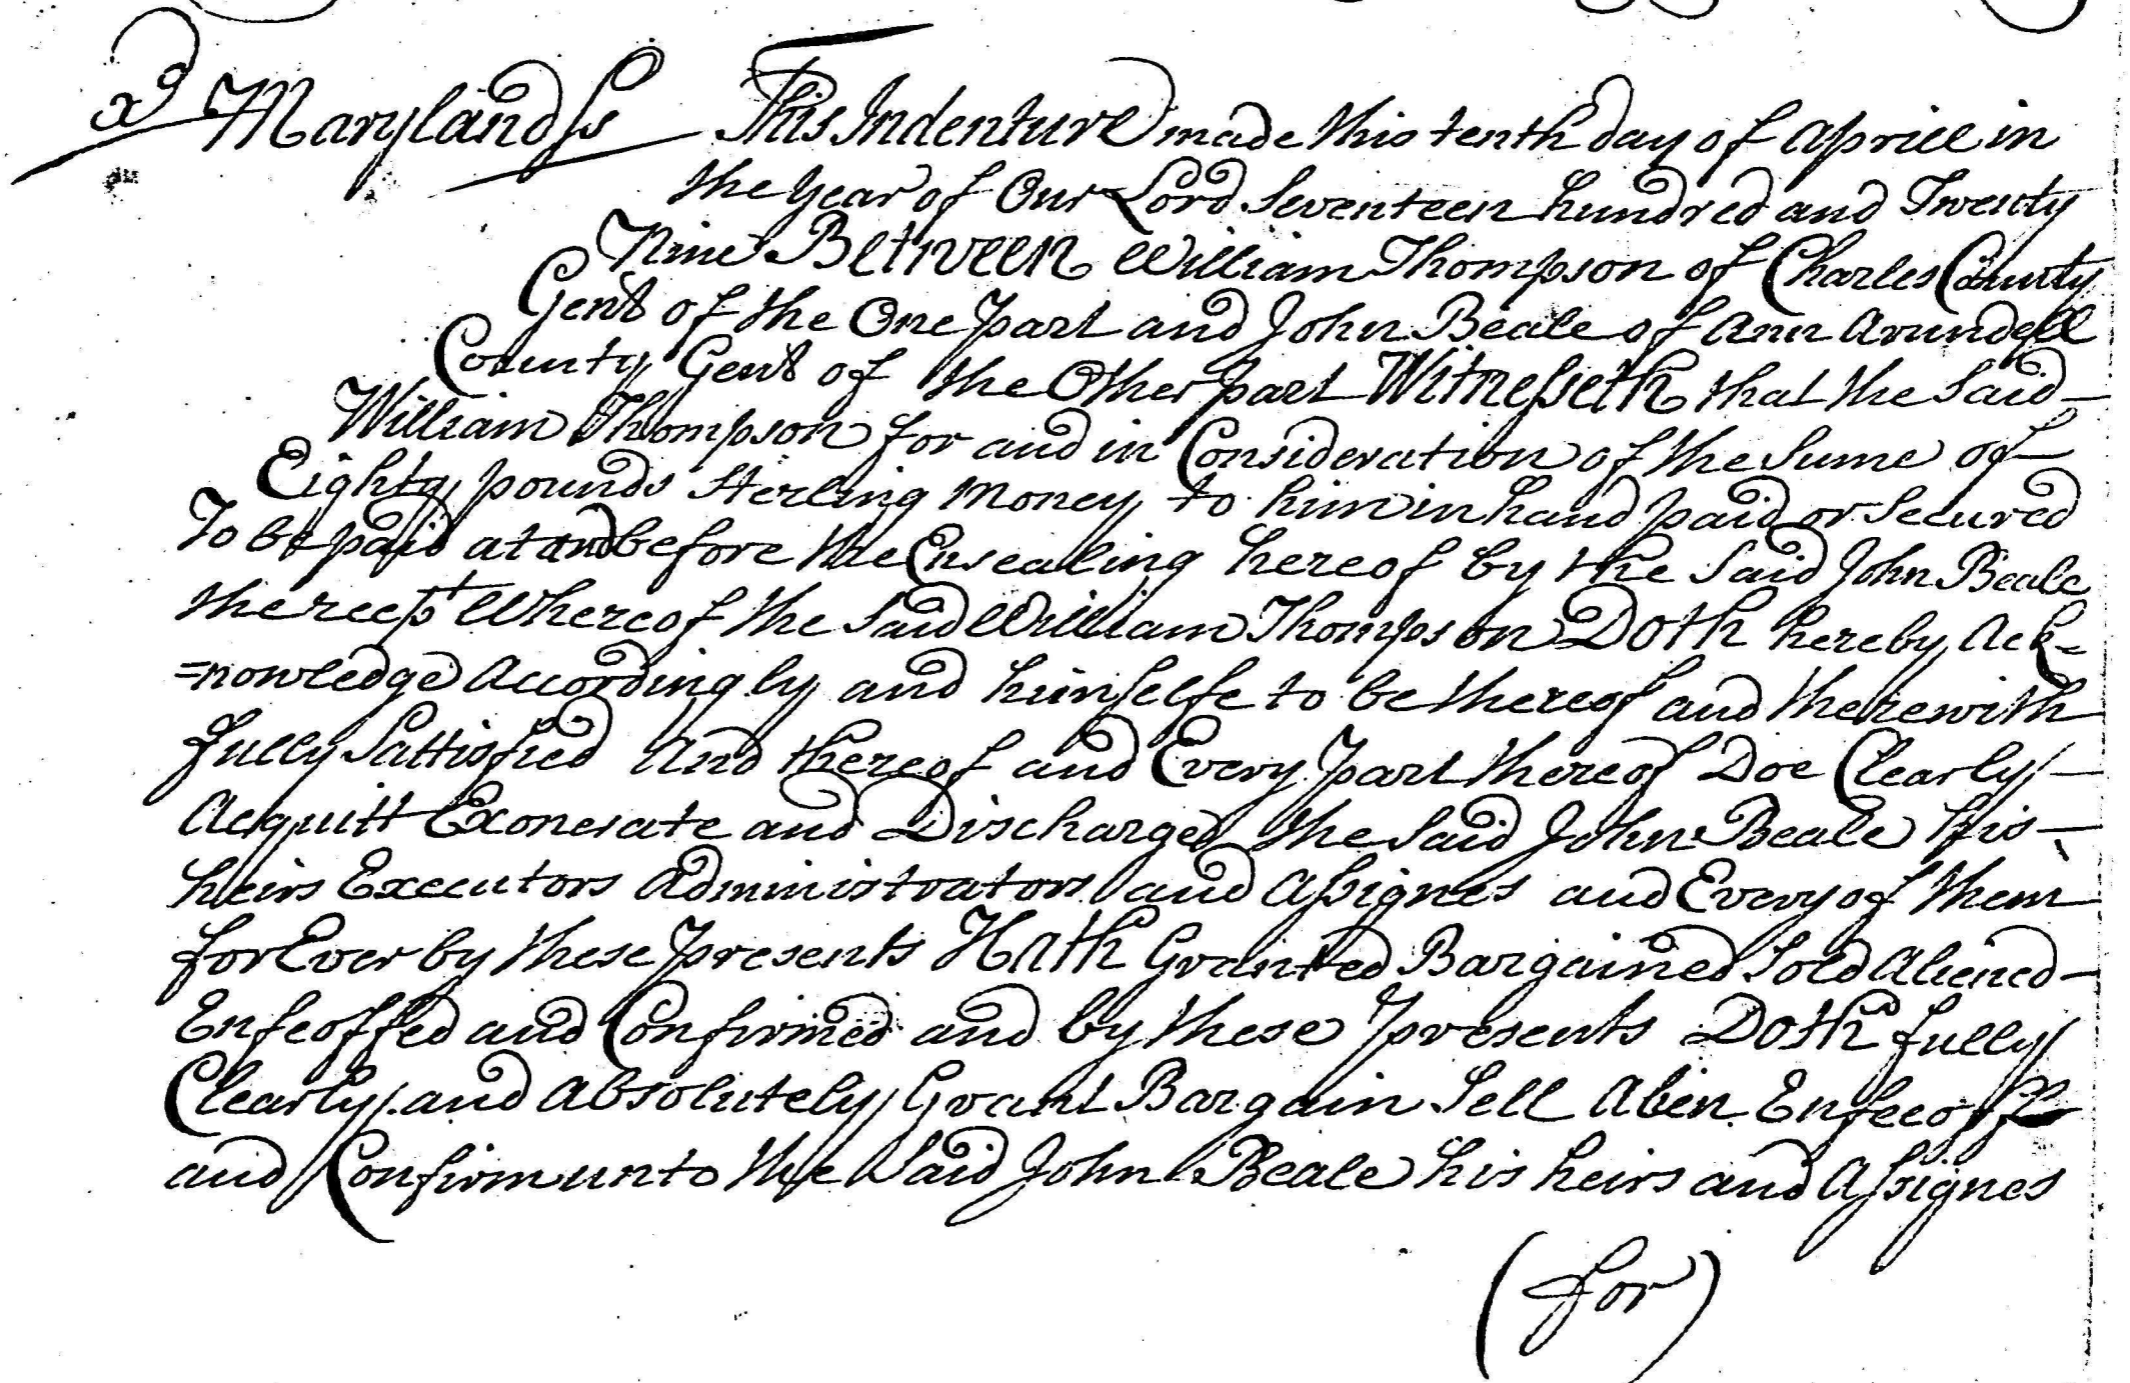 xd Maryland ss This Indenture made this tenth day of Aprill in
the Year of Our Lord Seventeen hundred and Twenty
Nine Between William Thompson of Charles County
Gent of the One part and John Beale of Ann Arundell
County Gent of the Other part Witnesseth that the Said
William Thompson for and in Consideration of the Sume of
Eighty pounds Sterling money to him in hand paid or Secured
To be paid at and before the Ensealing hereof by the Said John Beale
the recpt Whereof the Said William Thompson Doth hereby Ack-
=nowledge Accordingly and himselfe to be thereof and therewith
fully Sattisfied And thereof and Every part thereof Doe Clearly
Acquitt Exonerate and Discharge the Said John Beale his
heirs Executors Administrators and Assignes and Every of them
for Ever by these presents Hath Granted Bargained Sold Aliened
Enfeoffed and Confirmed and by these presents Doth fully
Clearly and Absolutely Grant Bargain Sell Alien Enfeeoffe
and Confirm unto the Said John Beale his heirs and Assignes
(for)